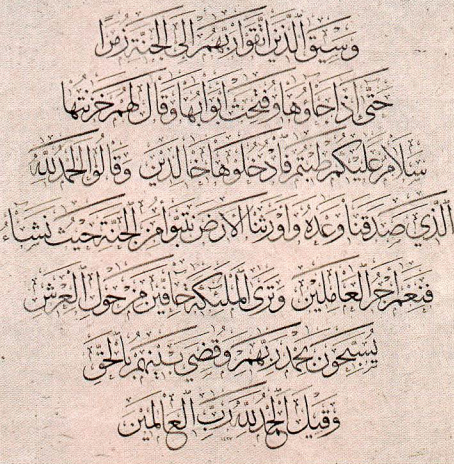 وَسِيقَ الَّذِينَ اتَّقَوْا رَبَّهُمْ إِلَى الْجَنَّةِ زُمَرًا
حَتَّى إِذَا جَاؤُوهَا وَفُتِحَتْ أَبْوَابُهَا وَقَالَ لَهُمْ خَزَنَتُهَا
سَلَامٌ عَلَيْكُمْ طِبْتُمْ فَادْخُلُوهَا خَالِدِينَ وَقَالُوا الْحَمْدُ لِلَّهِ
الَّذِي صَدَقَنَا وَعْدَهُ وَأَوْرَثَنَا الْأَرْضَ نَتَبَوَّأُ مِنَ الْجَنَّةِ حَيْثُ نَشَاءُ
فَنِعْمَ أَجْرُ الْعَامِلِينَ وَتَرَى الْمَلَئِكَةَ حَافِّينَ مِنْ حَوْلِ الْعَرْشِ
يُسَبِّحُونَ بِحَمْدِ رَبِّهِمْ وَقُضِيَ بَيْنَهُمْ بِالْحَقِّ
وَقِيلَ الْحَمْدُ لِلَّهِ رَبِّ الْعَالَمِينَ